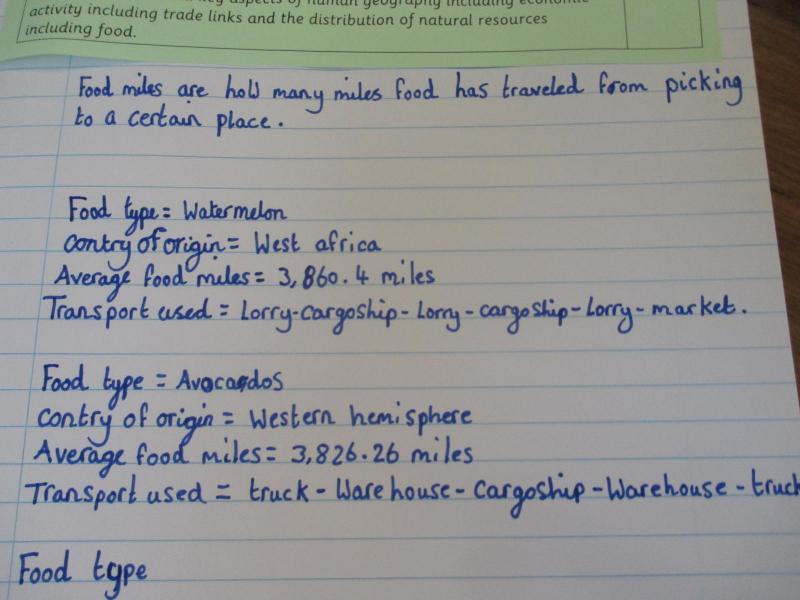 key aspects of human geography including economic
activity including trade links and the distribution of natural resources
including food.
Food miles are how many miles food has traveled from picking
to a certain place.
Food type = Watermelon
contry of origin = West africa
Average food miles = 3,860.4 miles
Transport used = Lorry-cargoship-Lorry-cargoship-Lorry-market.
Food type = Avocados
contry of origin = Western hemisphere
Average food miles = 3,826.26 miles
Transport used = truck-Warehouse-cargoship-Warehouse-truck
Food type